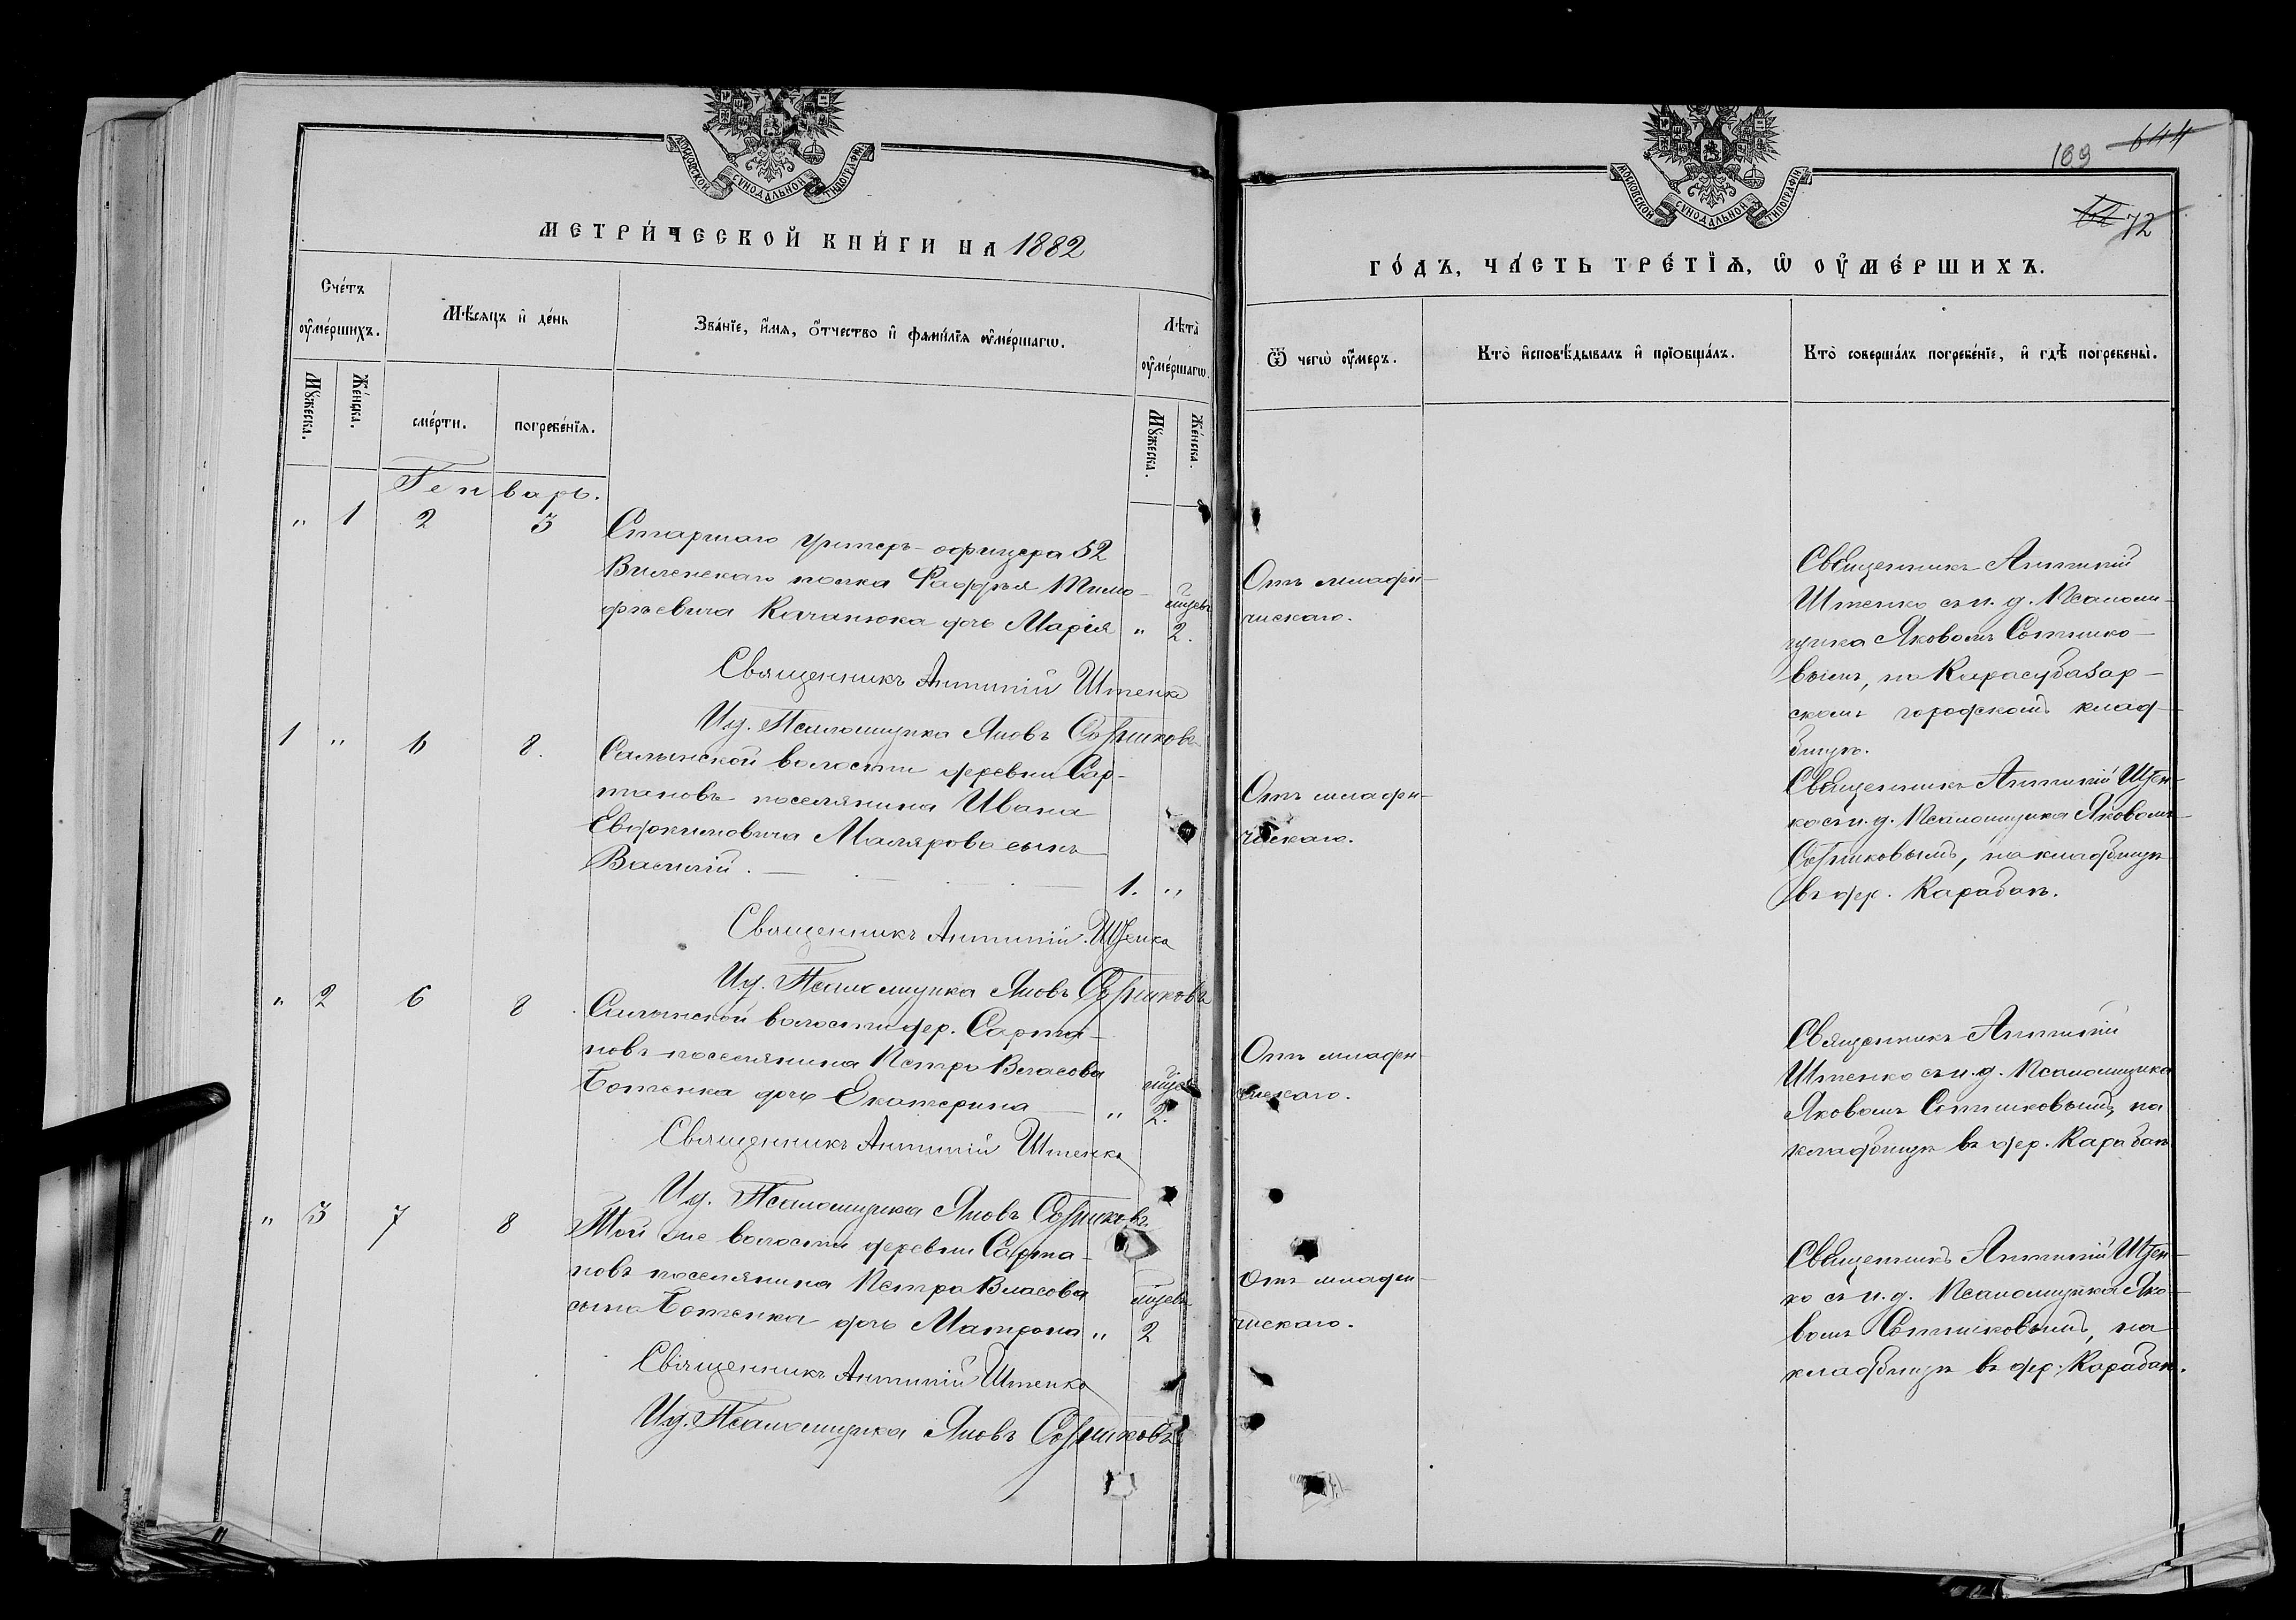 МОСКОВСКОЙ СѴНОДАЛЬНОЙ ТИПОГРАФІИ
МЕТРИ́ЧЕСКОЙ КНИ́ГИ НА 1882
Счéтъ ᲂу҆мéршихъ.
Мѣ́сяцъ и҆ дéнь
Звáнїе, и҆́мя, ѻ҆́тчество и҆ фамѝлїя ᲂу҆мéршагѡ.
Лѣ́та ᲂу҆мéршагѡ.
Мꙋ́жеска.
Жéнска.
смéрти.
погребéнїя.
Мꙋ́жеска.
Жéнска.
Генварь.
" 1 2 3
Старшаго унтеръ-офицера 52
Виленскаго полка Фаддѣя Тимо-
фѣевича Качанюка дочь Марія " 2.
Священникъ Антипій Штенко
И.д. Псаломщика Яковъ Сотниковъ
1 " 6 8.
Салынской волости деревни Сар-
тановъ поселянина Ивана
Евдокимовича Малярова сынъ
Василій. 1. "
Священникъ Антипій Штенко
И.д. Псаломщика Яковъ Сотниковъ
" 2 6 8
Салынской волости дер. Сарта-
новъ поселянина Петра Власова
Ботенка дочь Екатерина " 2.
Священникъ Антипій Штенко
И.д. Псаломщика Яковъ Сотниковъ
" 3 7 8
Той же волости деревни Сарта-
новъ поселянина Петра Власова
сына Ботенка дочь Матрона " 2
Священникъ Антипій Штенко
И.д. Псаломщика Яковъ Сотниковъ
МОСКОВСКОЙ СѴНОДАЛЬНОЙ ТИПОГРАФІИ
169 644
72
ГО́ДЪ, ЧА́СТЬ ТРЕ́ТЇѦ, Ѡ҆ ОУ҆МЕ́РШИХЪ.
Ѿ чегѡ̀ ᲂу҆́меръ.
Ктò и҆сповѣ́дывалъ и҆ прїѡбщáлъ.
Ктò совершáлъ погребéнїе, и҆ гдѣ̀ погребены̀.
Отъ младен-
ческаго.
Священникъ Антипій
Штенко съ и. д. Псалом-
щика Яковомъ Сотнико-
вымъ, на Карасубазар-
скомъ городскомъ клад-
бищѣ.
Отъ младен-
ческаго.
Священникъ Антипій Штен-
ко съ и. д. Псаломщика Яковомъ
Сотниковымъ, на кладбищѣ
въ дер. Карабаѣ.
Отъ младен-
ческаго.
Священникъ Антипій
Штенко съ и. д. Псаломщика
Яковомъ Сотниковымъ, на
кладбищѣ въ дер. Карабаѣ
Отъ младен-
ческаго.
Священникъ Антипій Штен-
ко съ и. д. Псаломщика Яко-
вомъ Сотниковымъ, на
кладбищѣ въ дер. Карабаѣ.